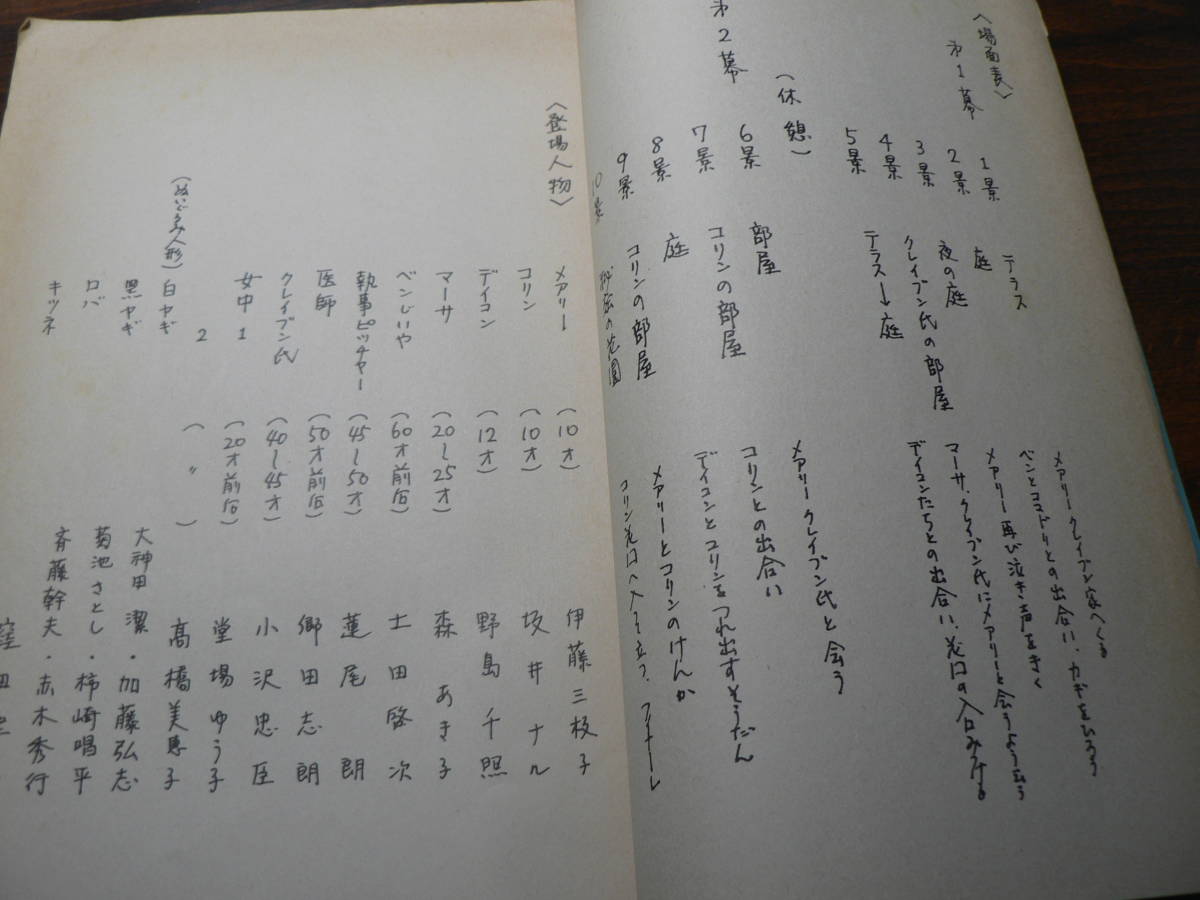 〈場面表〉
第1幕
1景 テラス メアリークレイブン家へくる
2景 庭 ベンとコマドリとの出合い、カギをひろう
3景 夜の庭 メアリー再び泣き声をきく
4景 クレイブン氏の部屋 マーサ、クレイブン氏にメアリーと会うよう云う
5景 テラス→庭 デイコンたちとの出合い、花口の入口みける
(休憩)
第2幕
6景 部屋 メアリークレイブン氏と会う
7景 コリンの部屋 コリンとの出合い
8景 庭 デイコンとコリンをつれ出すそうだん
9景 コリンの部屋 メアリーとコリンのけんか
10景 秘密の花園 コリン花口へ入る立つ、フィナーレ
〈登場人物〉
メアリー (10才) 伊藤三枝子
コリン (10才) 坂井ナル
デイコン (12才) 野島千照
マーサ (20〜25才) 森あき子
ベンじいや (60才前后) 土田啓次
執事ピッチャー (45〜50才) 蓮尾朗
医師 (50才前后) 郷田志朗
クレイブン氏 (40〜45才) 小沢忠臣
女中1 (20才前后) 堂場ゆう子
2 (〃) 高橋美恵子
(ぬいぐるみ人形) 白ヤギ 大神田潔・加藤弘志
黒ヤギ 菊池さとし・柿崎唱平
ロバ 斉藤幹夫・赤木秀行
キツネ